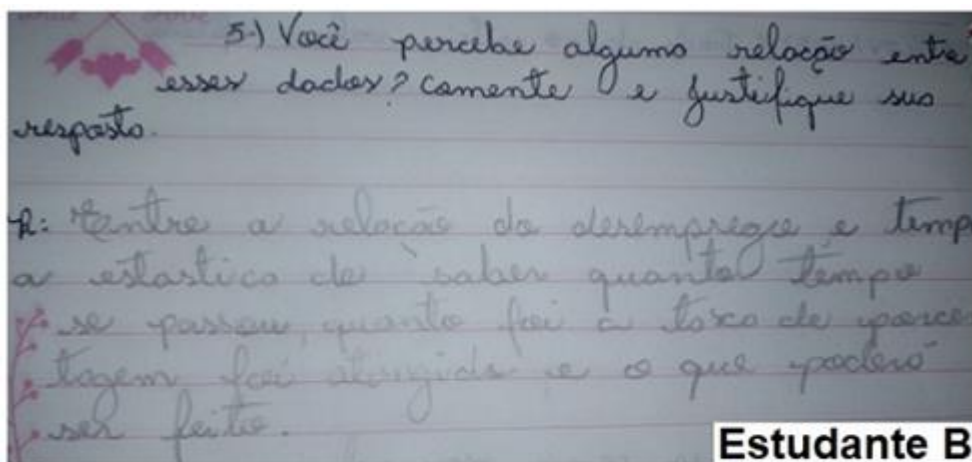 5-) Você percebe alguma relação entre
esses dados? Comente e justifique sua
resposta.
R: Entre a relação do desemprego e temp
a estastica de saber quanto tempo
se passou, quanto foi a taxa de porce
tagem foi atingida e o que poderá
ser feito.
Estudante B